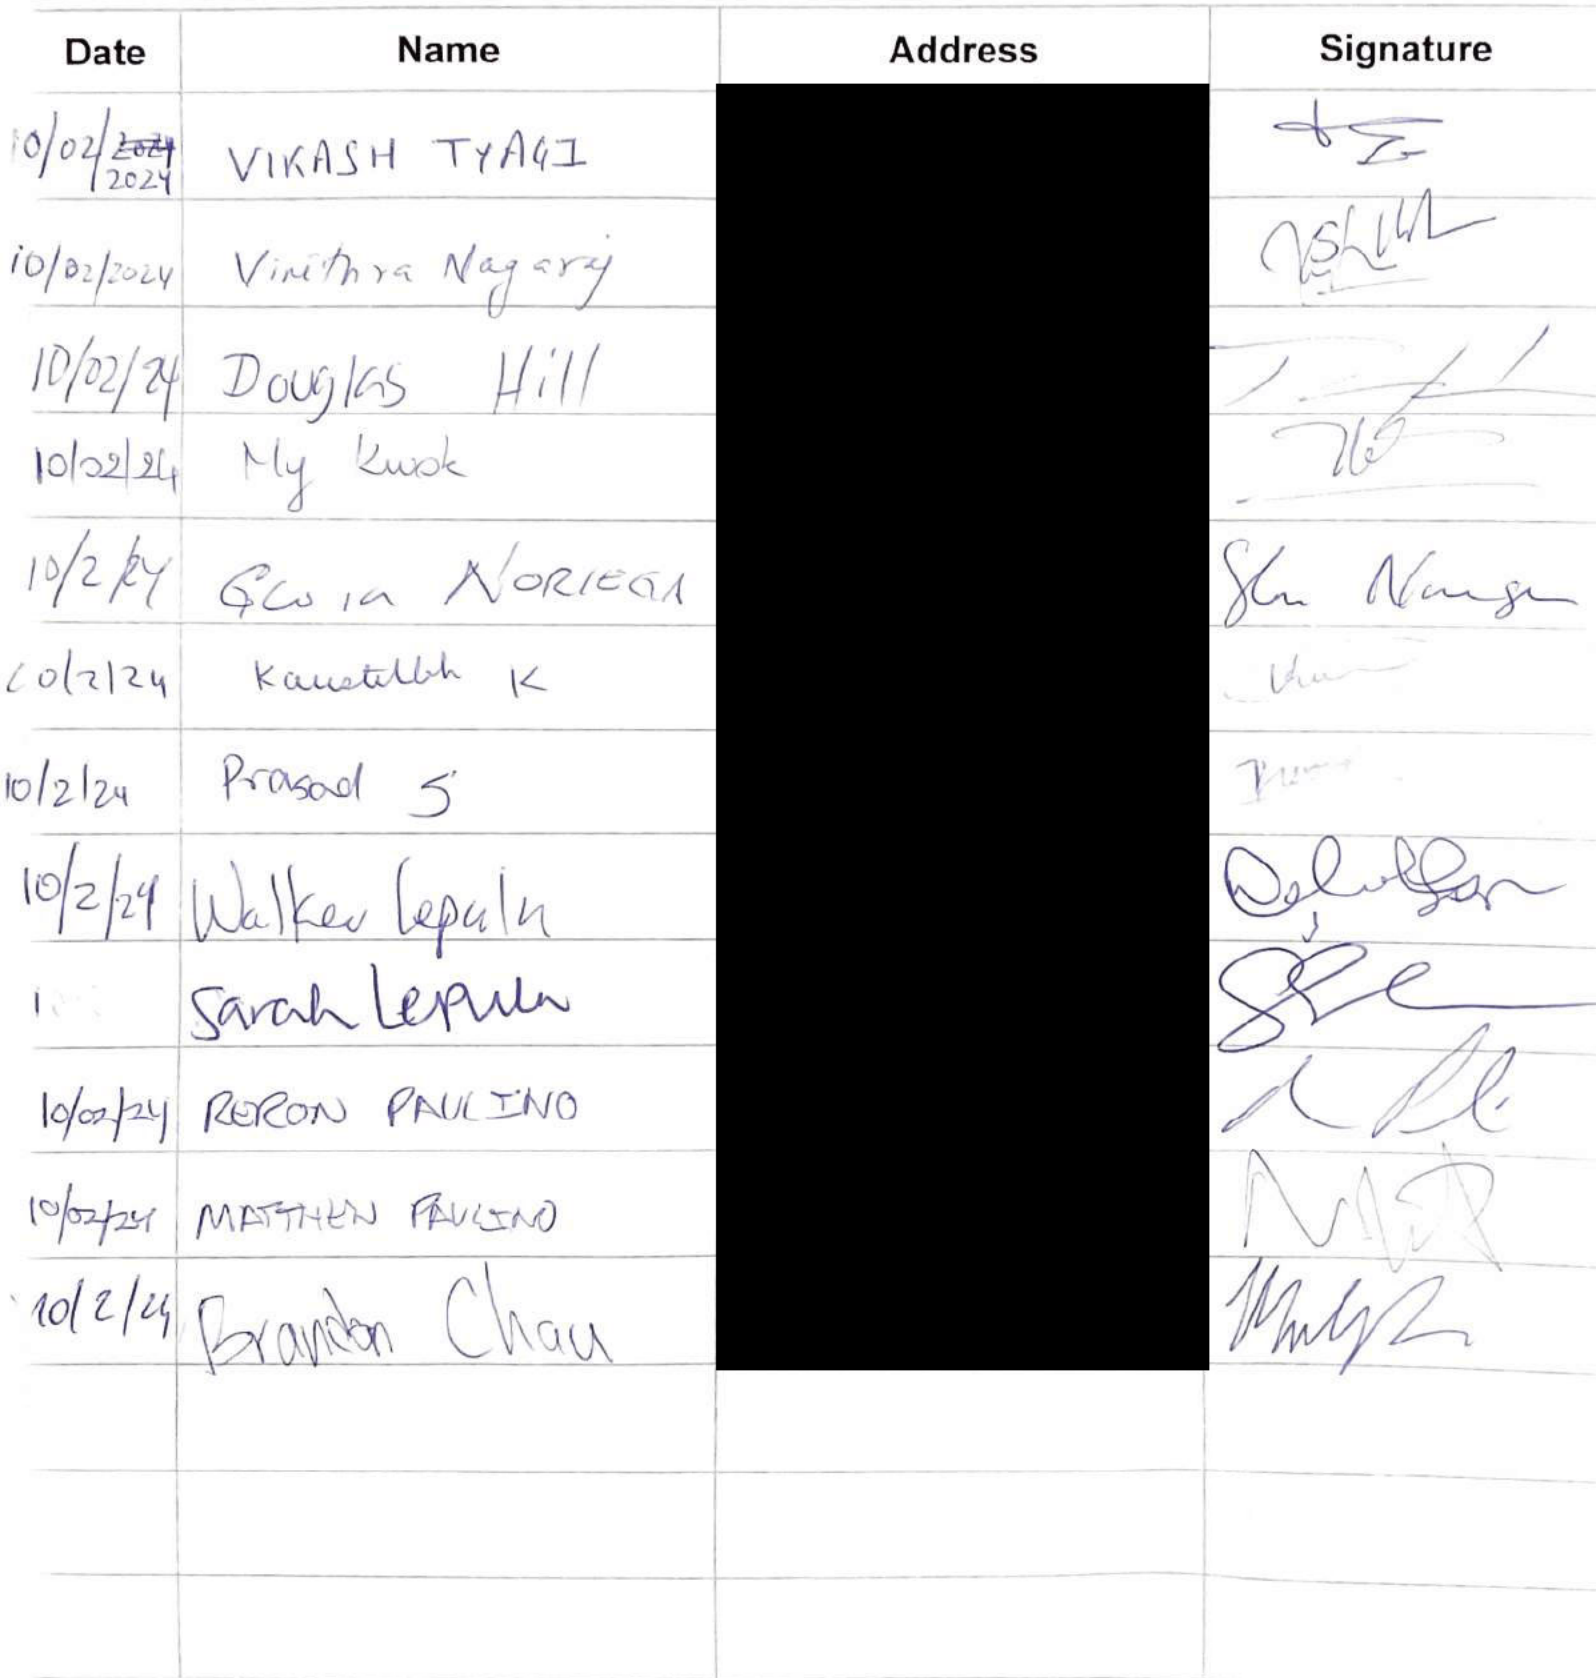 Date Name Address Signature
10/02/2024 2024 VIKASH TYAGI
10/02/2024 Vinithra Nagaraj
10/02/24 Douglas Hill
10/02/24 My Kwok
10/2/24 Gloria NORIEGA
10/2/24 K
10/2/24 Prasad S
10/2/24 Walker Lepula
Sarah Lepula
10/02/24 RERON PAULINO
10/02/24 MATTHEW PAULINO
10/2/24 Brandon Chau